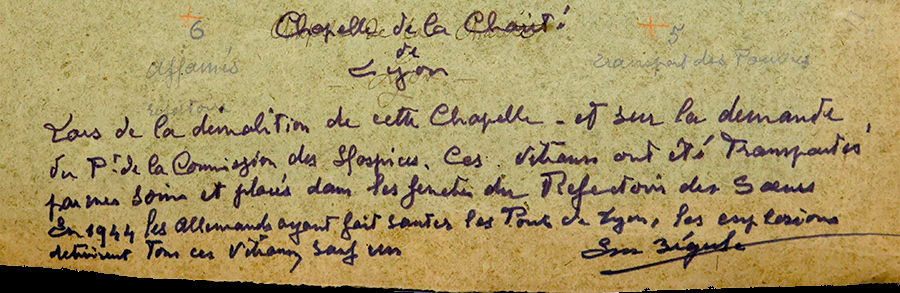 6
Chapelle de la Charité
5
de
Affamés
Lyon
Transport des Pauvres
Lors de la démolition de cette Chapelle - et sur la demande
du Pt. de la Commission des Hospices. Ces Vitraux ont été Transportés
par mes soins et placés dans les fenetres du Refectoire des Soeurs
En 1944 les Allemands ayant fait sauter les Ponts de Lyon, les explosions
detruirent Tous ces Vitraux sauf un